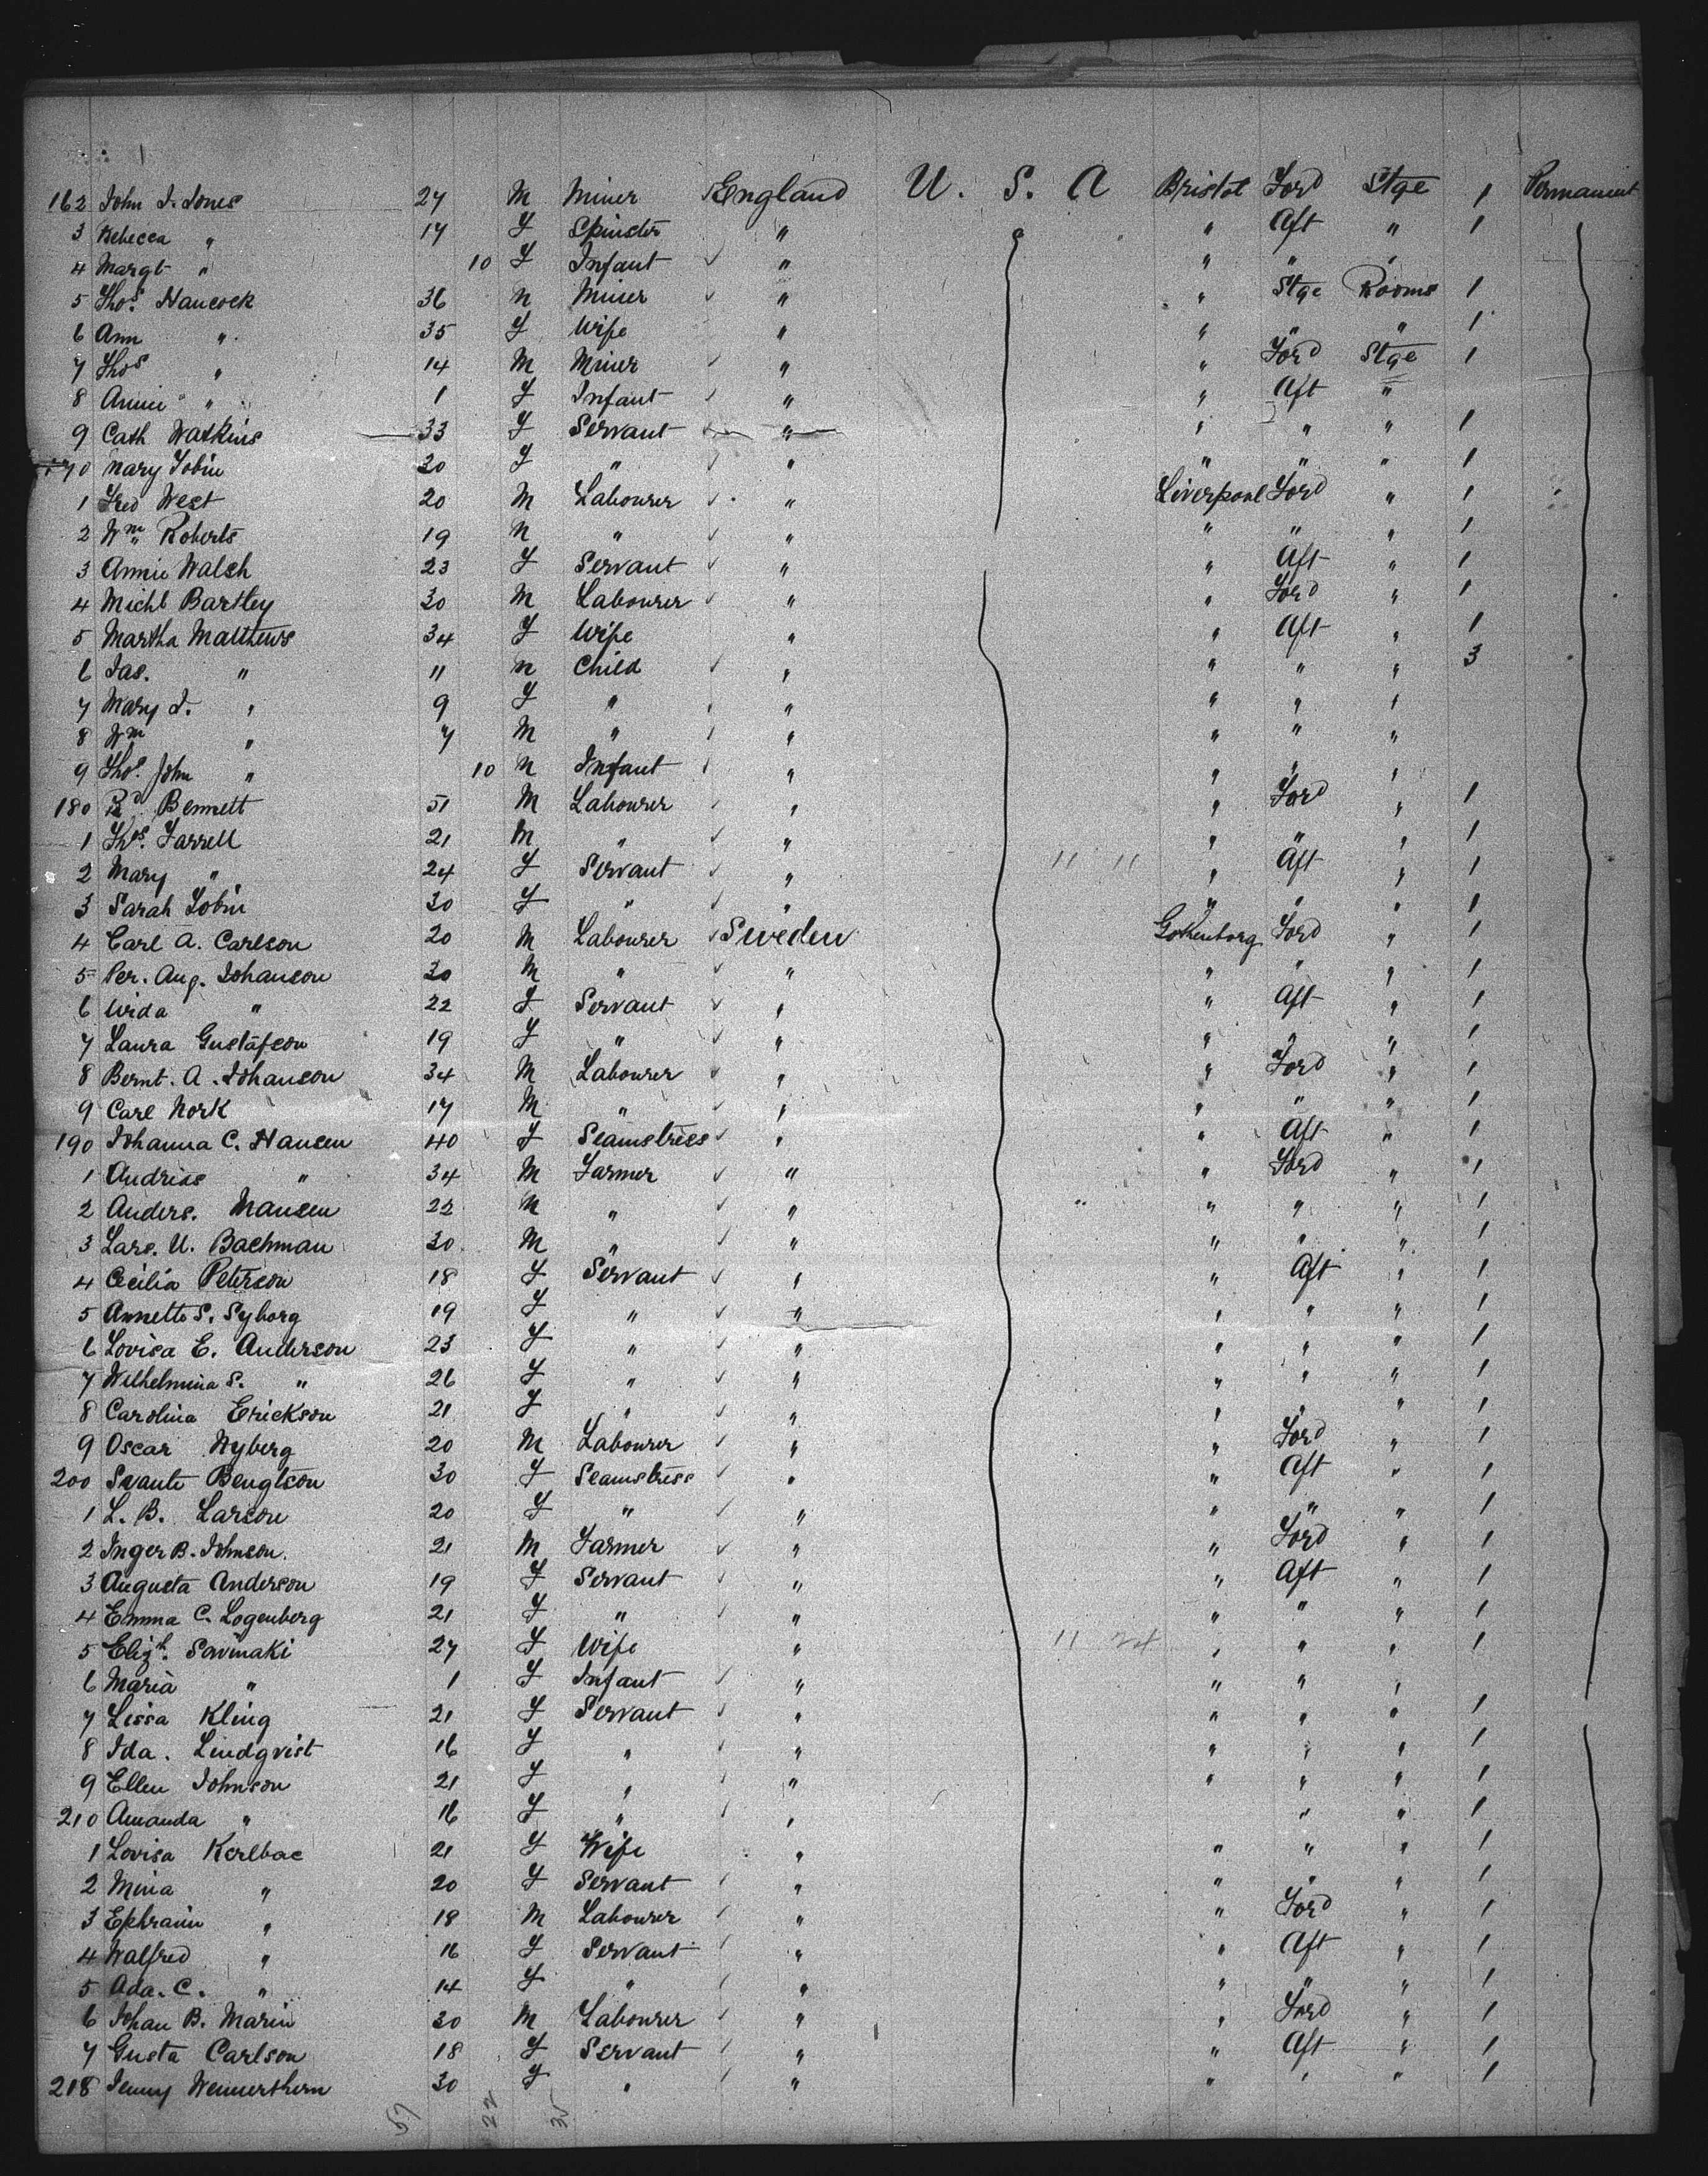 162 John J. Jones 27 M Miner England U. S. A Bristol Ford Stge 1 Permanent
3 Rebecca " 17 F Spinster " " Aft " 1
4 Margt " 10 F Infant " " " "
5 Thos. Hancock 36 M Miner " " Stge Rooms 1
6 Ann " 35 F Wife " " " " 1
7 Thos " 14 M Miner " " Ford Stge 1
8 Annie " 1 F Infant " " Aft "
9 Cath Watkins 33 F Servant " " " " 1
170 Mary Tobin 30 F " " " " " 1
1 Fred West 20 M Labourer " Liverpool Ford " 1
2 Wm Roberts 19 M " " " " " 1
3 Annie Walsh 23 F Servant " " Aft " 1
4 Michl Bartley 30 M Labourer " " Ford " 1
5 Martha Matthews 34 F Wife " " Aft " 1
6 Jas. " 11 M Child " " " " 3
7 Mary J. " 9 F " " " " "
8 Wm " 7 M " " " " "
9 Thos. John " 10 M Infant " " " "
180 Rd. Bennett 51 M Labourer " " Ford " 1
1 Thos. Farrell 21 M " " " " " 1
2 Mary " 24 F Servant " 11 11 " Aft " 1
3 Sarah Tobin 30 F " " " " " 1
4 Carl A. Carlson 20 M Labourer Sweden Gothenborg Ford " 1
5 Per. Aug. Johanson 30 M " " " " " 1
6 Wida " 22 F Servant " " Aft " 1
7 Laura Gustafson 19 F " " " " " 1
8 Bernt. A. Johanson 34 M Labourer " " Ford " 1
9 Carl Nork 17 M " " " " " 1
190 Johanna C. Hansen 40 F Seamstress " " Aft " 1
1 Andrias " 34 M Farmer " " Ford " 1
2 Anders. Mansen 22 M " " " " " 1
3 Lars. U. Bachman 30 M " " " " " 1
4 Cecilia Peterson 18 F Servant " " Aft " 1
5 Annette S. Syborg 19 F " " " " " 1
6 Lovisa E. Anderson 23 F " " " " " 1
7 Wilhelmina S. " 26 F " " " " " 1
8 Carolina Erickson 21 F " " " " " 1
9 Oscar Nyberg 20 M Labourer " " Ford " 1
200 Svante Bengtson 30 F Seamstress " " Aft " 1
1 L. B. Larson 20 F " " " " " 1
2 Inger B. Johnson. 21 M Farmer " " Ford " 1
3 Augusta Anderson 19 F Servant " " Aft " 1
4 Emma C. Logenberg 21 F " " " " " 1
5 Elizh. 27 F Wife " 11 24 " " " 1
6 Maria " 1 F Infant " " " "
7 Lissa Kling 21 F Servant " " " " 1
8 Ida. Lindqvist 16 F " " " " " 1
9 Ellen Johnson 21 F " " " " " 1
210 Amanda " 16 F " " " " 1
1 Lovisa Kerlbac 21 F Wife " " " " 1
2 Mina " 20 F Servant " " " " 1
3 Ephraim " 18 M Labourer " " Ford " 1
4 Walfred " 16 F Servant " " Aft " 1
5 Ada. C. " 14 F " " " " " 1
6 Johan B. Marin 30 M Labourer " " Ford " 1
7 Gusta Carlson 18 F Servant " " Aft " 1
218 Jenny Wennerthern 30 F " " " " " 1
57 22 35